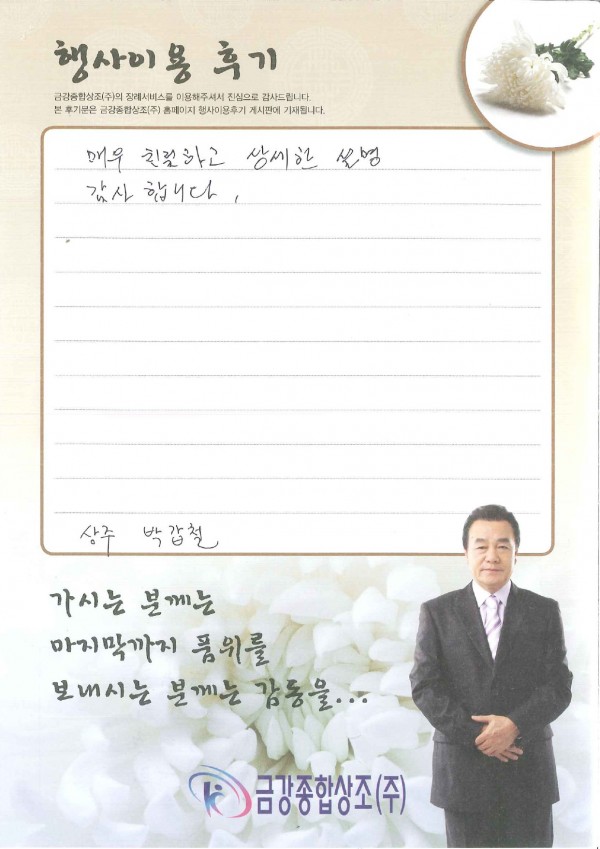 행사이용 후기
금강종합상조(주)의 장례서비스를 이용해주셔서 진심으로 감사드립니다.
본 후기문은 금강종합상조(주) 홈페이지 행사이용후기 게시판에 기재됩니다.
매우 친절하고 상세한 설명
감사 합니다,
상주 박갑철
가시는 분께는
마지막까지 품위를
보내시는 분께는 감동을...
금강종합상조(주)